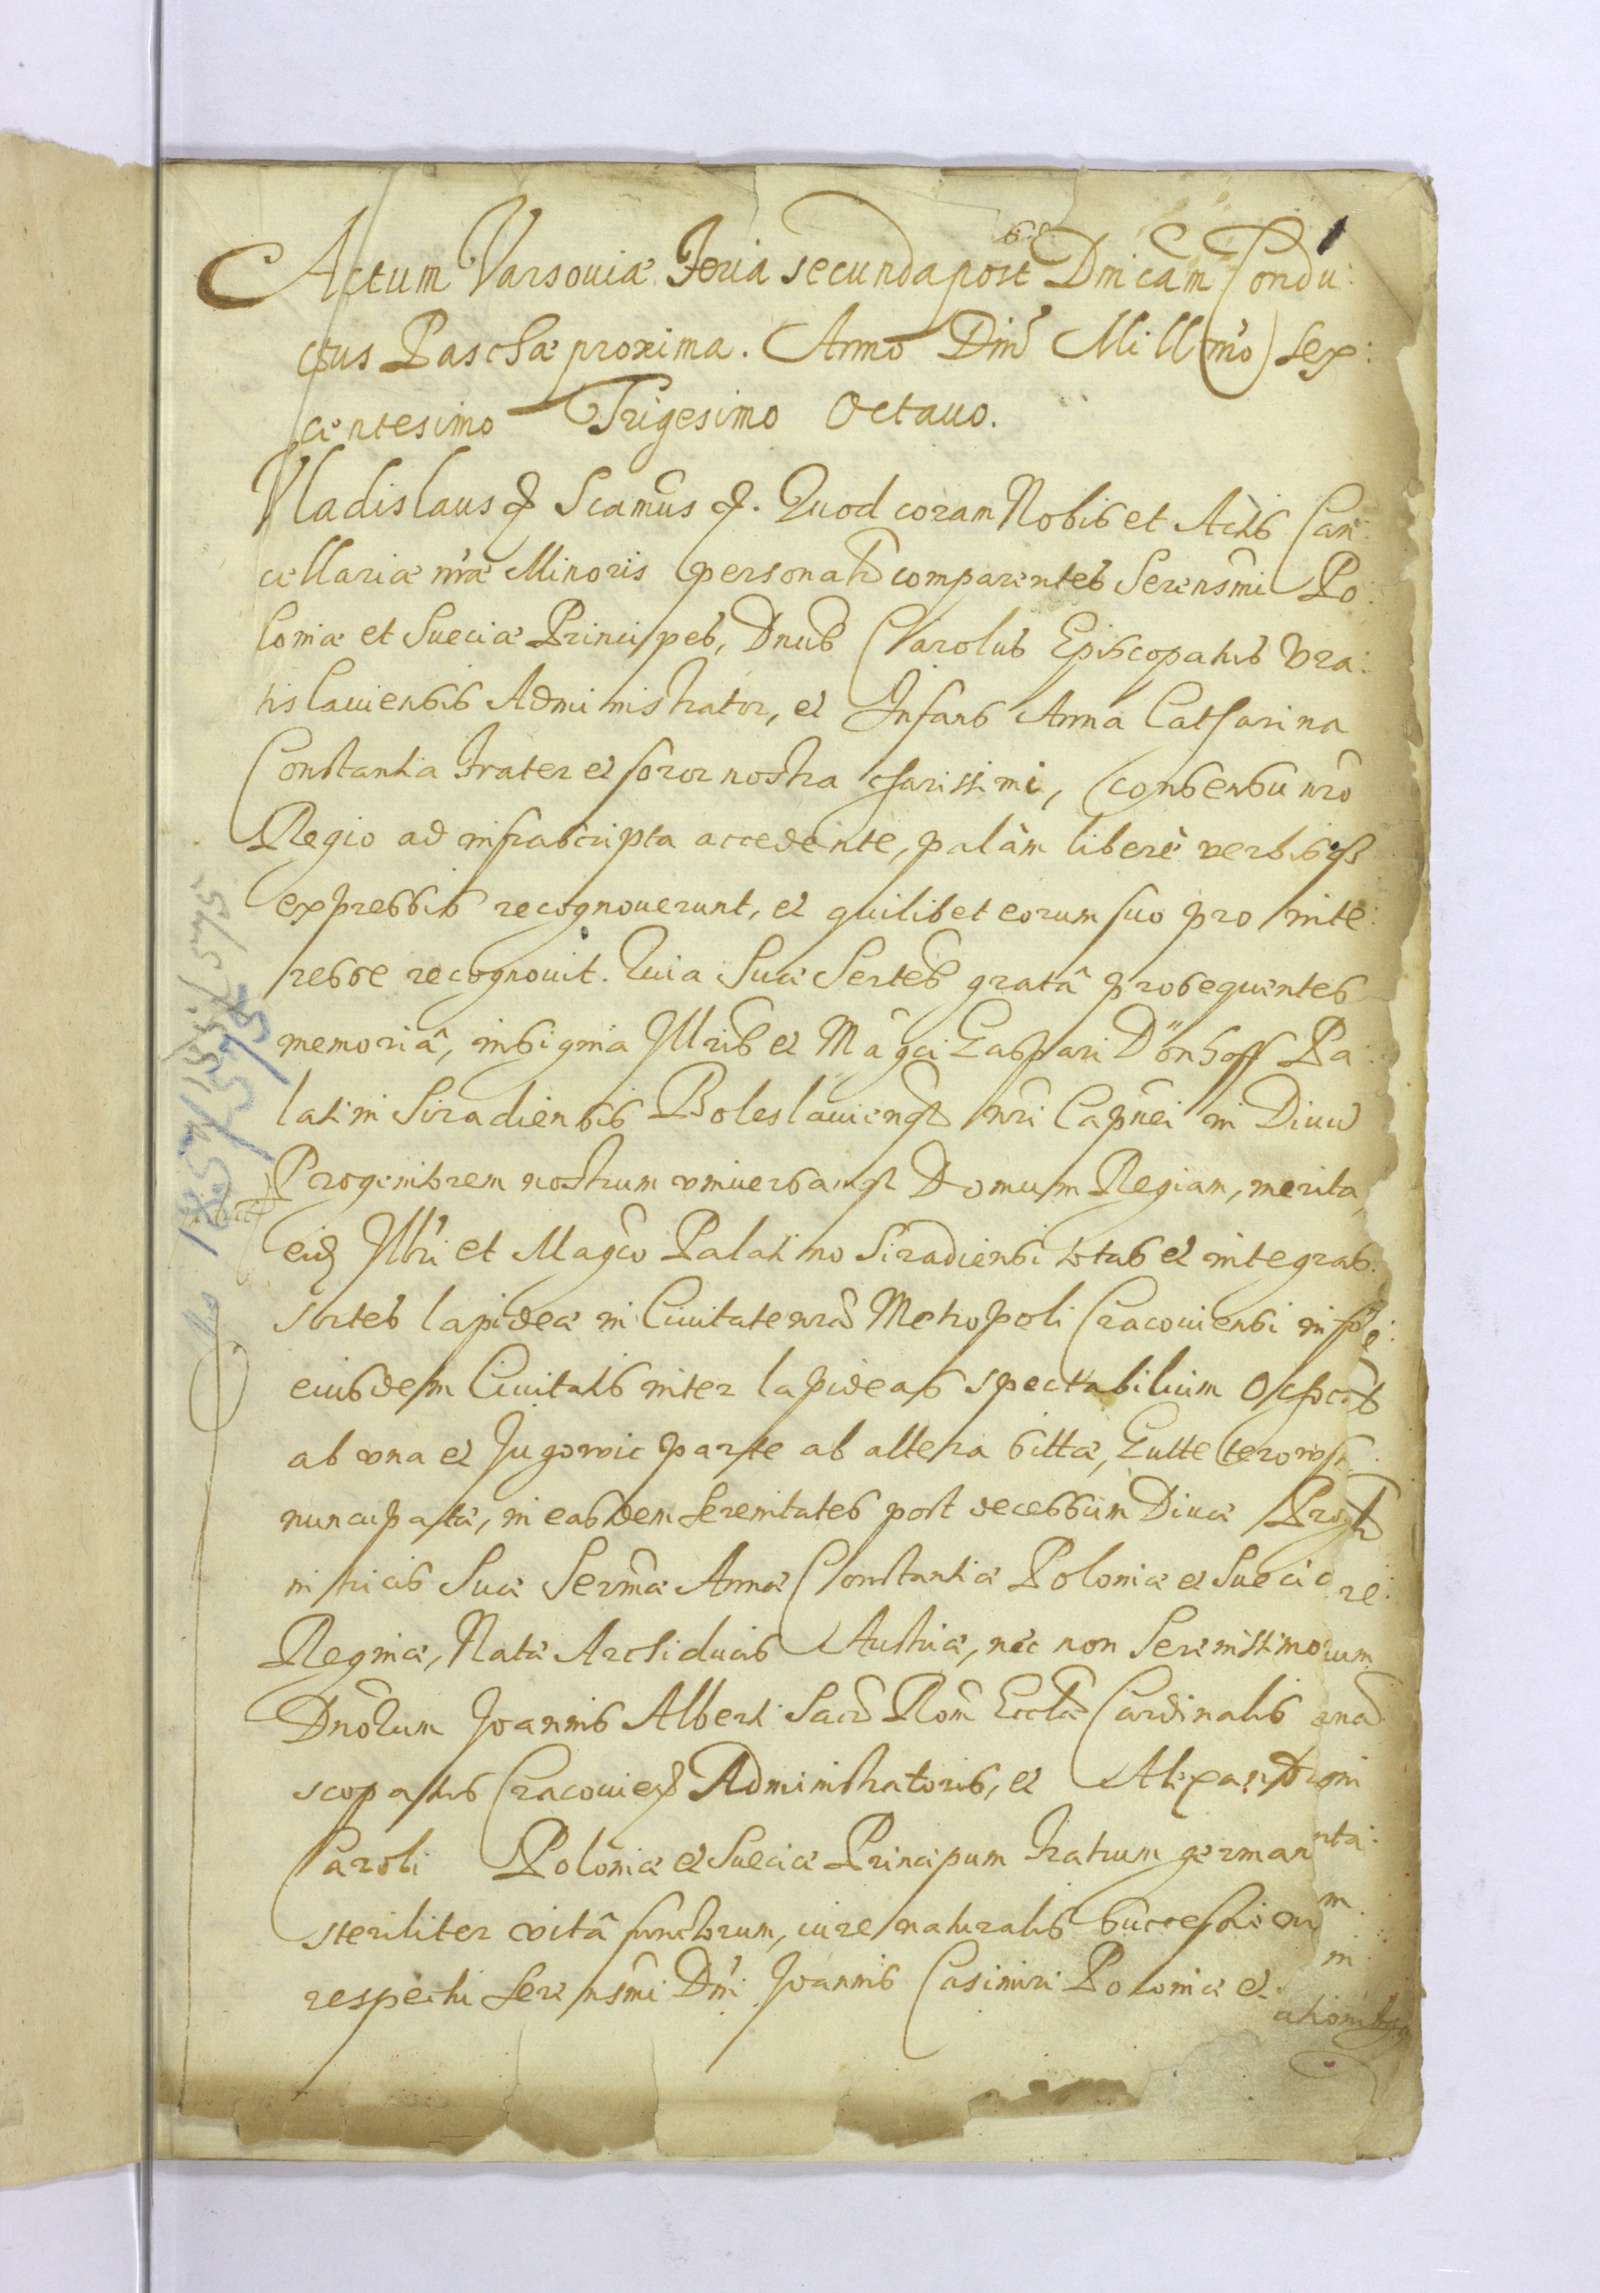 Actum Varsouiæ Feria secunda post Dnicam Condu:
ctus Paschæ proxima. Anno Dni Mill(mo) sex:
centesimo Trigesimo Octauo.
Vladislaus & Scamus &. Quod coram Nobis et Actis Can:
cellariæ nræ Minoris personatr comparentes Serensmi Po:
loniæ et Sueciæ Principes, Dnus Carolus Episcopatus Vra:
tislauiensis Administrator, et Infans Anna Catharina
Constantia frater et soror nostra charissimi, consensu nro
Regio ad infrascripta accedente, palàm liberè verbisqs
expressis recognouerunt, et quilibet eorum suo pro inte:
resse recognouit. Quia Suæ Sertes gratâ prosequentes
memoriâ, insignia Illris et Magci Caspari Dönhoff Pa:
latini Siradiensis Boleslauiensq nri Capnei in Diuũ
Progenitorem nostrum vniuersamqz Domum Regiam, merita
eid Illri et Magco Palatino Siradiensi totas et integras
sortes lapideæ in Ciuitate nrã Metropoli Cracouiensi in
eiusdem Ciuitatis inter lapideas spectabilium
ab vna et Jugowic parte ab altera sittæ,
nuncupatæ, in easdem Serenitates post decessum Diuæ
nitricis Suæ Sermæ Annæ Constantiæ Poloniæ et Sueciæ
Reginæ, Natæ Archiducis Austriæ, nec non Serenissimorum
Dnorum Joannis Alberti Sacr Rom Eccl Cardinalis
scopatus Cracouien Administratoris, et Alexandri
Caroli Poloniæ et Sueciæ Principum fratrum german
steriliter vitâ functorum, iure naturalis successionis
respectu Serensmi Dni Joannis Casimiri Poloniæ et